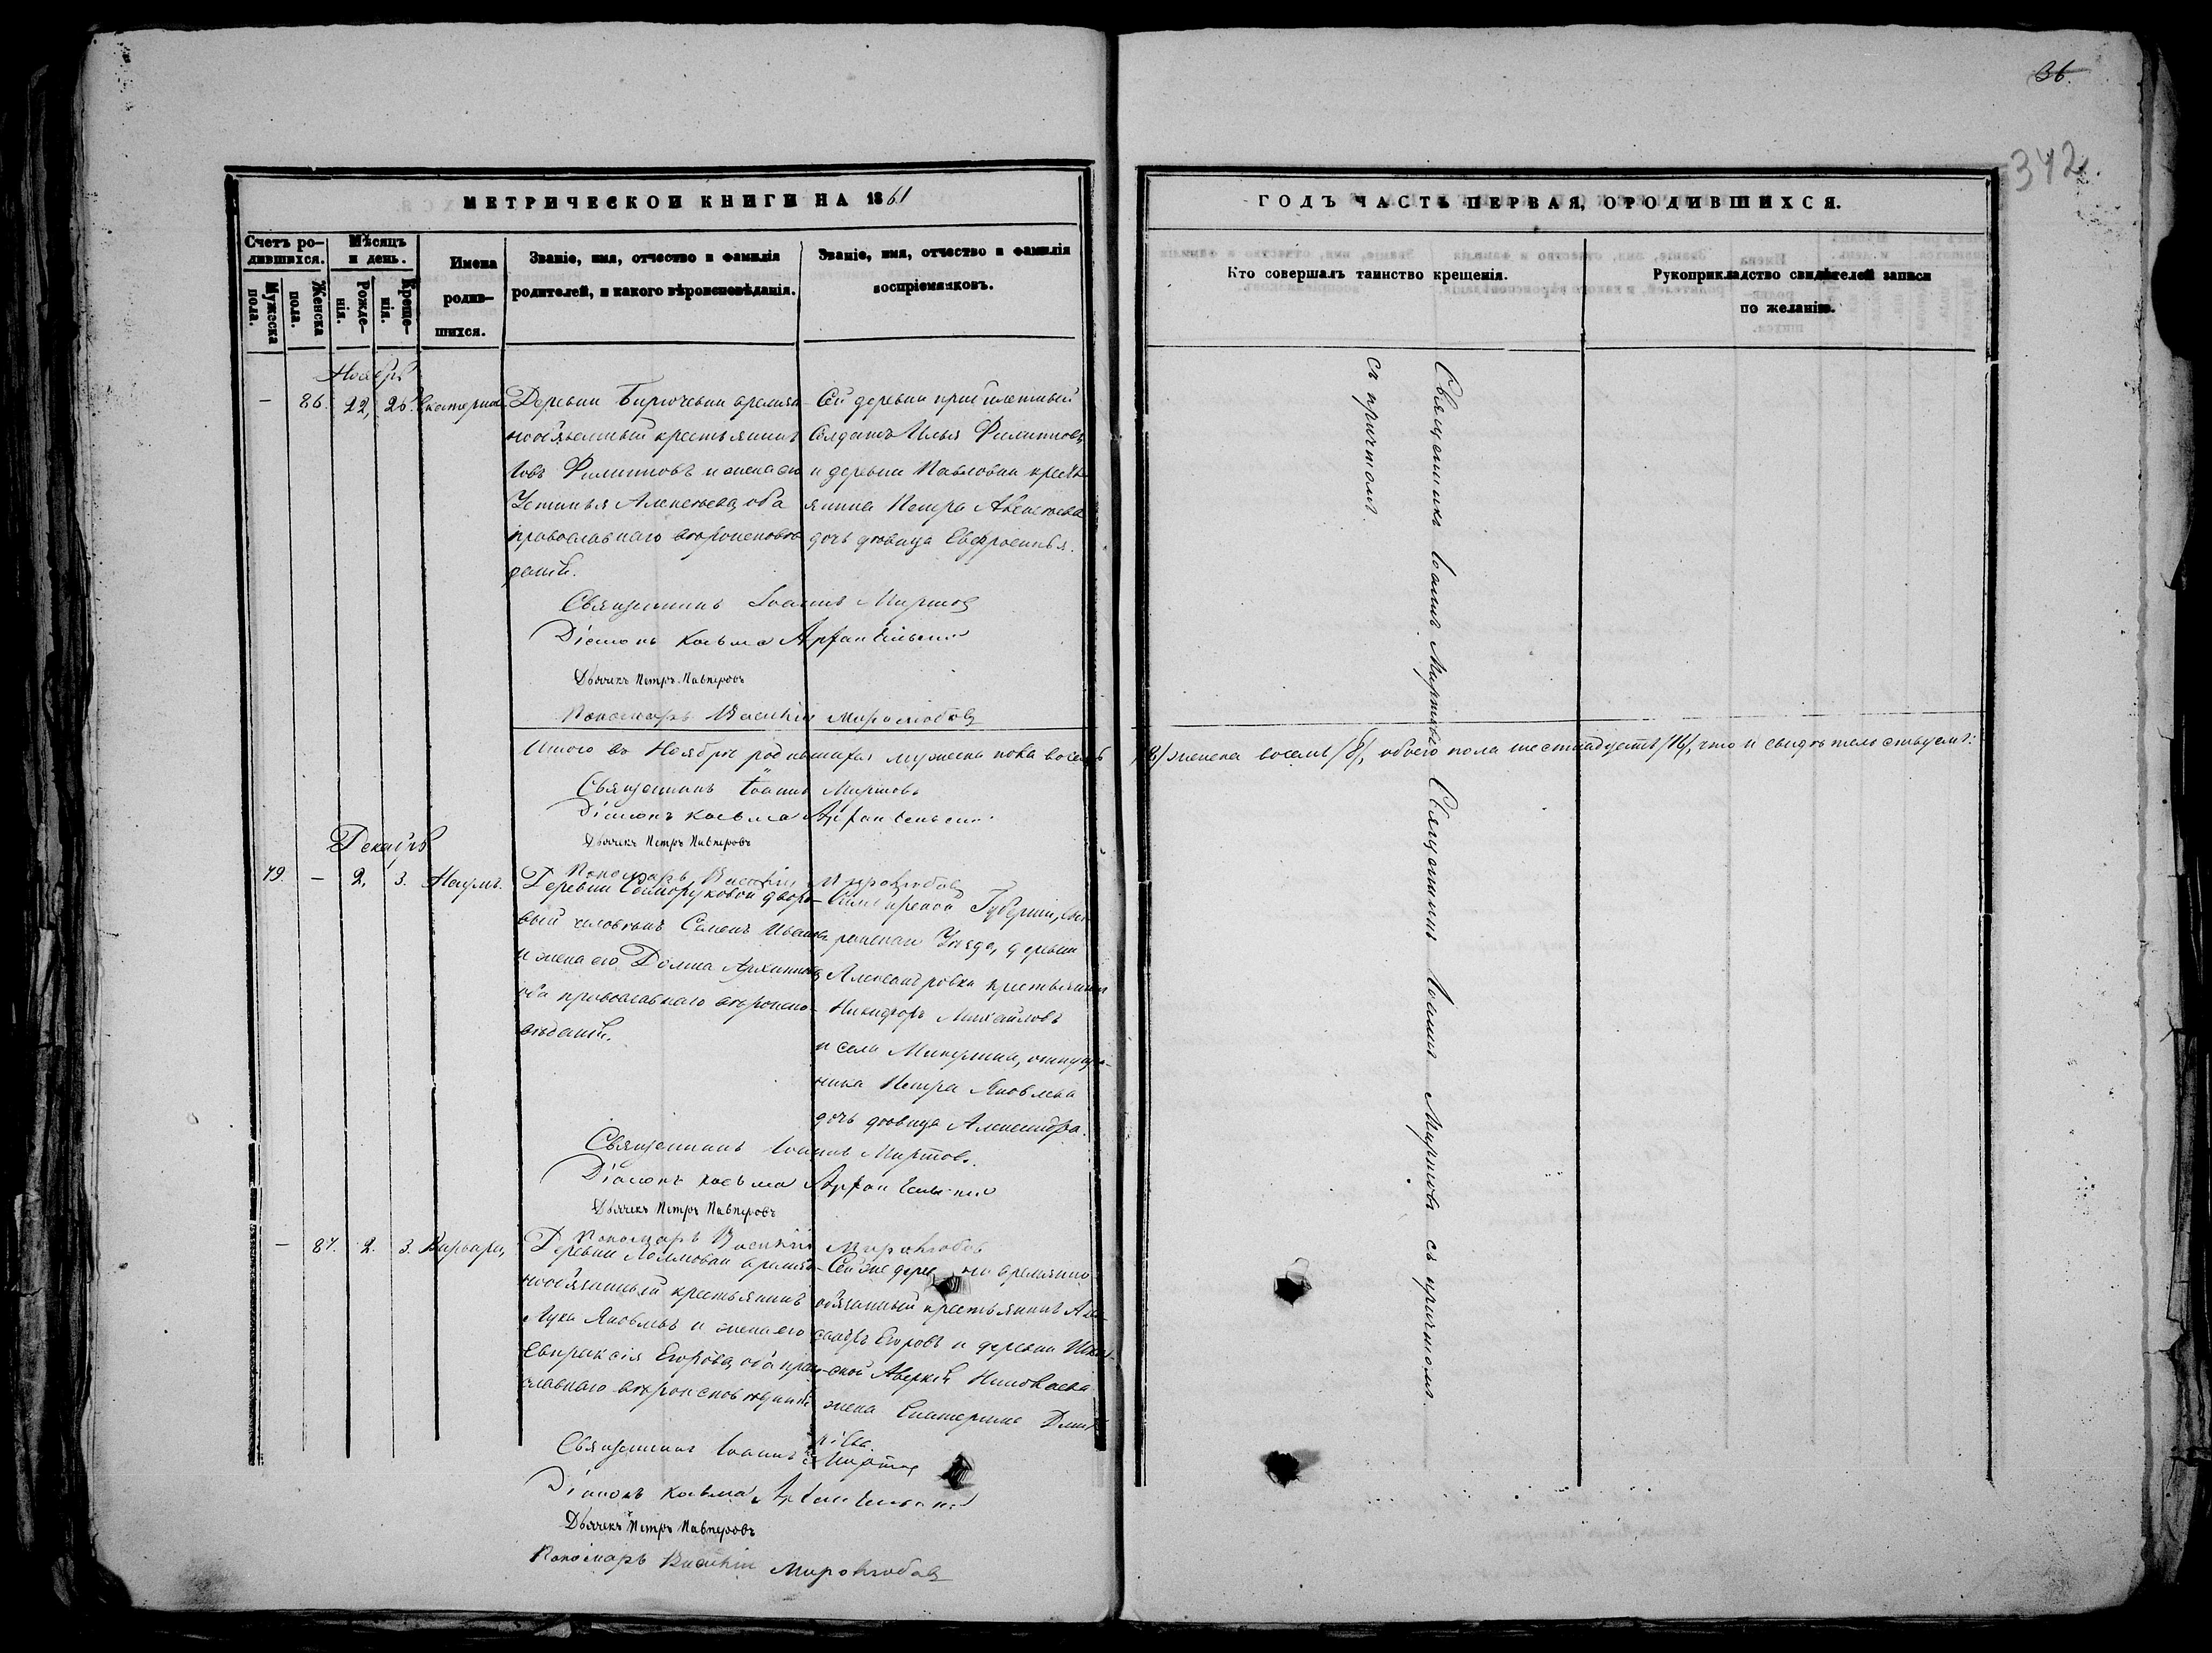 36.
342.
МЕТРИЧЕСКОЙ КНИГИ НА 1861
ГОДЪ ЧАСТЬ ПЕРВАЯ, О РОДИВШИХСЯ.
Счетъ родившихся.
Мужеска пола.
Женска пола.
Мѣсяцъ и день.
Рожденія.
Крещенія.
Имена родившихся.
Званіе, имя, отчество и фамилія
родителей, и какого вѣроисповѣданія.
Званіе, имя, отчество и фамилія
воспріемниковъ.
Кто совершалъ таинство крещенія.
Рукоприкладство свидѣтелей записи
по желанію.
Ноябрь
86. 22, 26. Екатерина
Деревни Бирючевки времян
нообязанный крестьянинъ
Іовъ Филипповъ и жена его
Устинья Алексѣева, оба
православнаго вѣроисповѣ
данія.
Сей деревни
Солдатъ Илья Филипповъ
и деревни Павловки кресть
янина Петра Алексѣева
дочь дѣвица Евфросинья.
Священникъ Іоаннъ Миртовъ
Діаконъ Косьма Архангельскій
Дьячекъ Петръ Павперовъ
Пономарь Василій Миролюбовъ
Священникъ Іоаннъ Миртовъ
съ причтомъ.
Итого въ Ноябрѣ родившихся мужеска пола восемь
/8/ женска восемь /8/, обоего пола шестнадцать /16/, что и свидѣтельствуемъ:
Священникъ Іоаннъ Миртовъ
Діаконъ Косьма Архангельскій
Дьячекъ Петръ Павперовъ
Пономарь Василій Миролюбовъ
Декабрь
79. – 2, 3. Наумъ.
Деревни Саморуковой дворо-
вый человѣкъ Семенъ Иванов
и жена его Домна Архипова
оба православнаго вѣроиспо-
вѣданія.
Симбирской Губерніи, Сыз
ранскаго Уѣзда, деревни
Александровки крестьянинъ
Никифоръ Михайловъ
и села Микулина,
Петра Яковлева
дочь дѣвица Александра.
Священникъ Іоаннъ Миртовъ.
Діаконъ Косьма Архангельскій
Дьячекъ Петръ Павперовъ
Пономарь Василій Миролюбовъ
– 87. 2. 3. Варвара,
Деревни времян
нообязанный крестьянинъ
Лука Яковлевъ и жена его
Евпраксія Егорова, оба право
славнаго вѣроисповѣданія
Сей же деревни времянно
обязанный крестьянинъ Алек
сандръ Егоровъ и деревни
Аверкія Николаева
жена Екатерина Дмит
ріева.
Священникъ Іоаннъ Миртовъ
Діаконъ Косьма Архангельскій
Дьячекъ Петръ Павперовъ
Пономарь Василій Миролюбовъ
Священникъ Іоаннъ Миртовъ съ причтомъ.